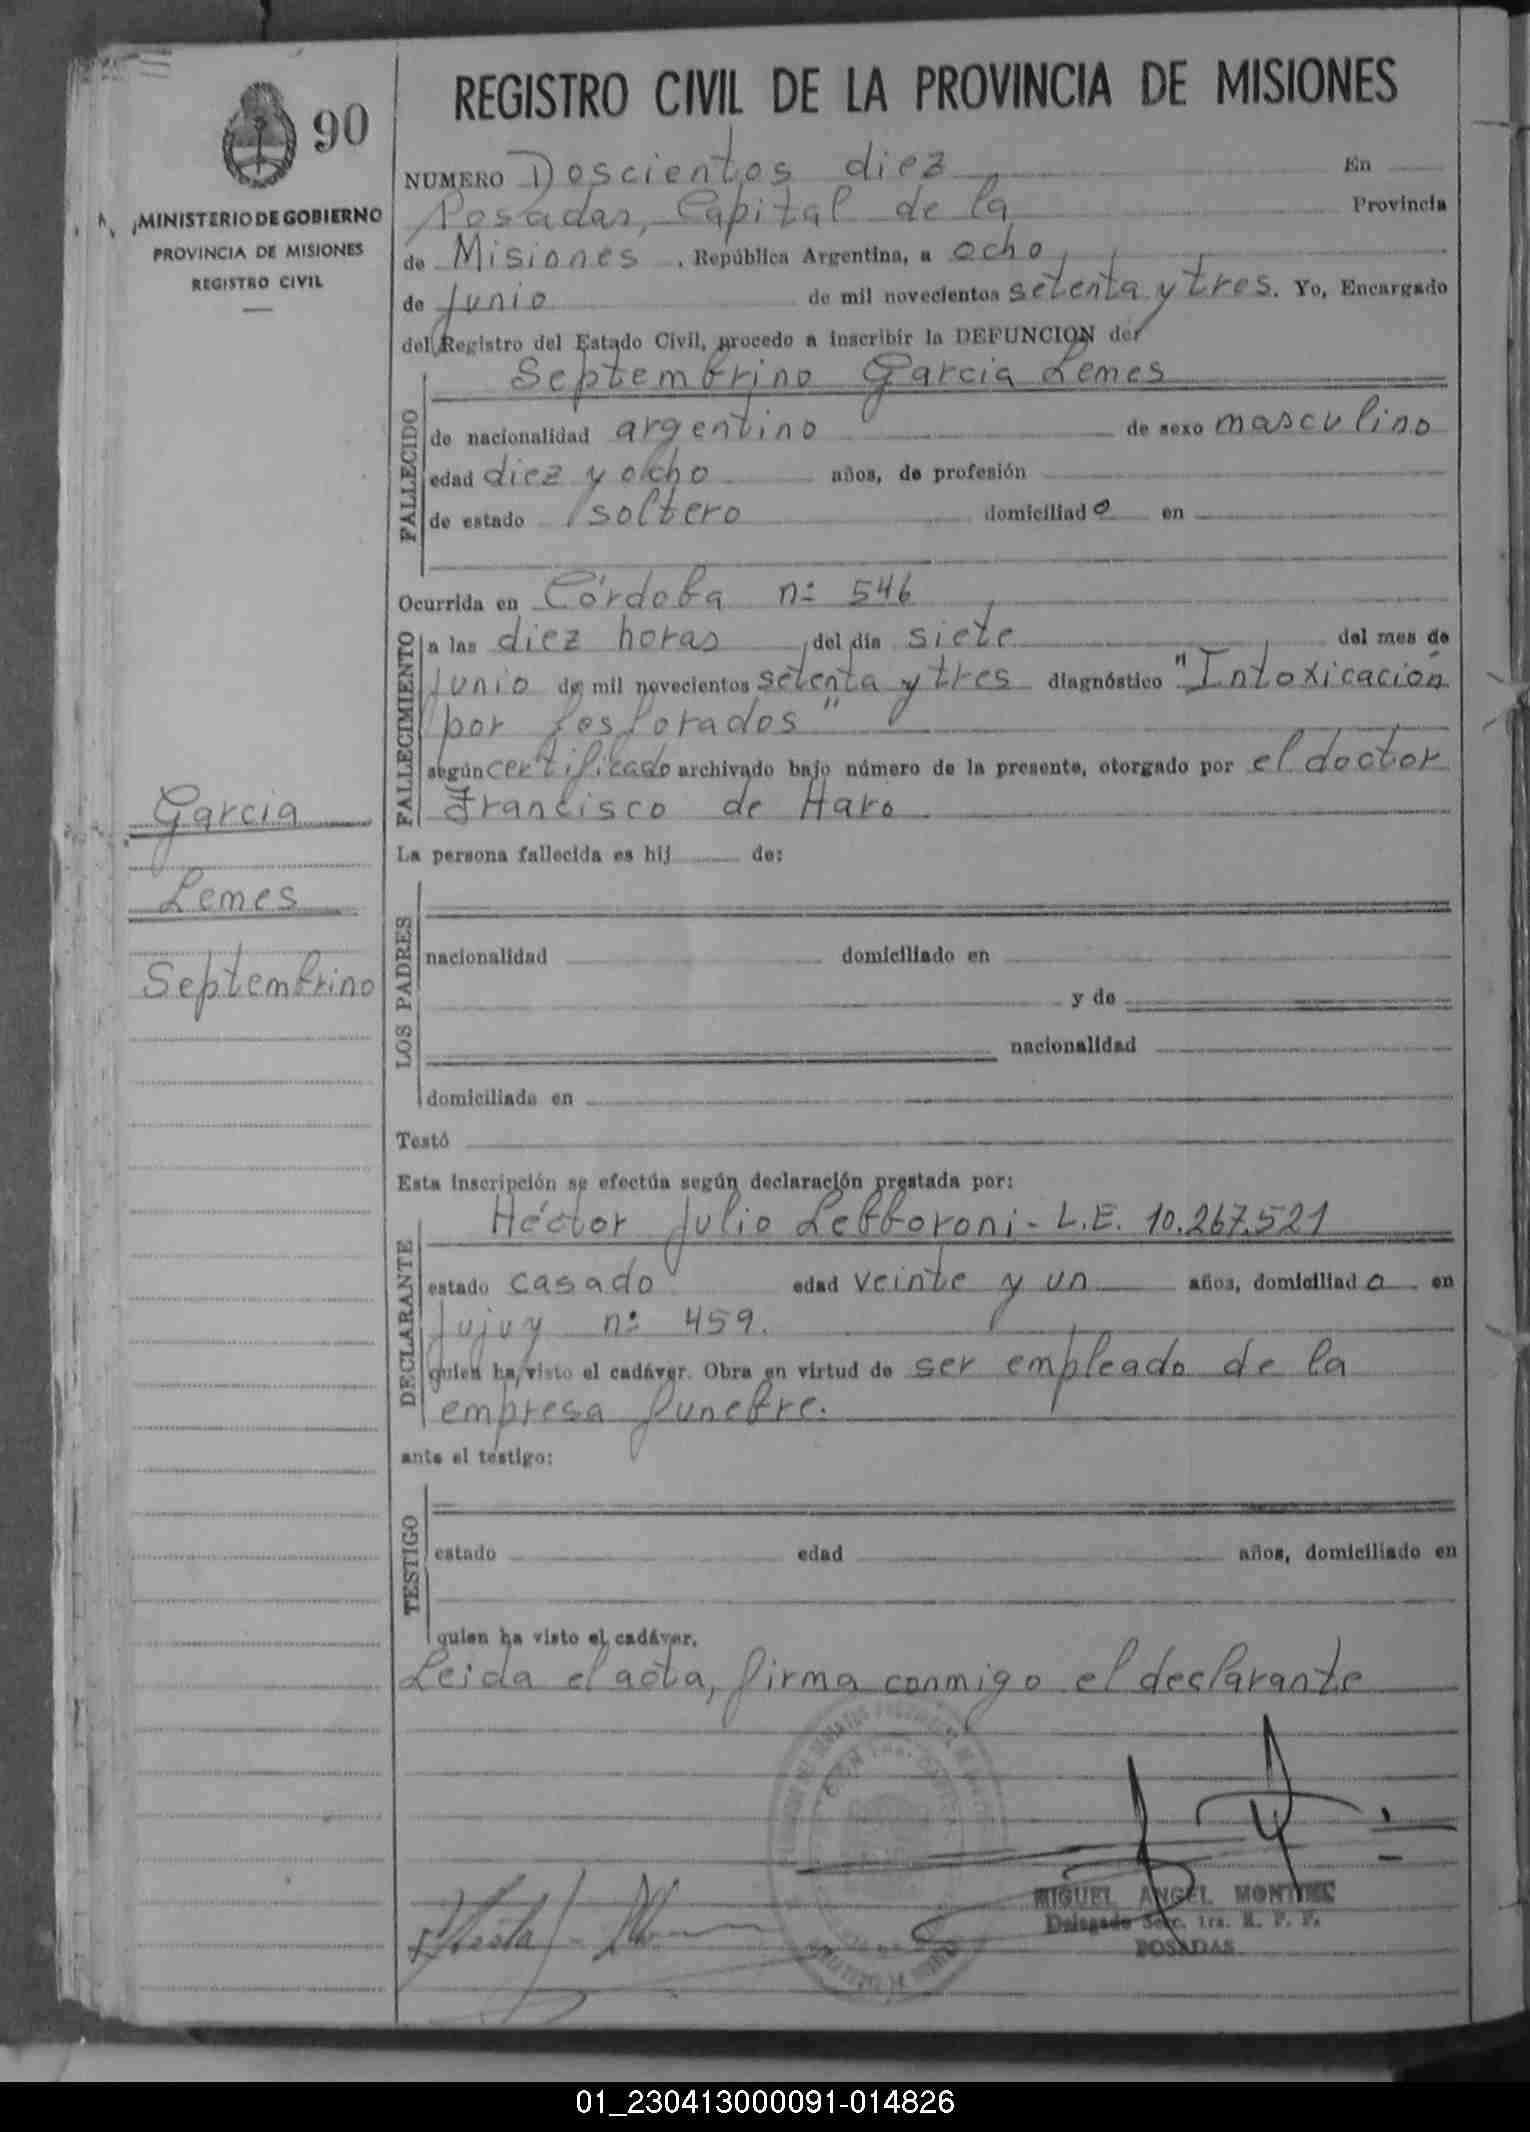 90
MINISTERIO DE GOBIERNO
PROVINCIA DE MISIONES
REGISTRO CIVIL
Garcia
Lemes
Septembrino
REGISTRO CIVIL DE LA PROVINCIA DE MISIONES
NUMERO Doscientos diez En
Posadas, Capital de la Provincia
de Misiones, República Argentina, a ocho
de Junio de mil novecientos setenta y tres. Yo, Encargado
del Registro del Estado Civil, procedo a inscribir la DEFUNCION de
Septembrino Garcia Lemes
FALLECIDO
de nacionalidad argentino de sexo masculino
edad diez y ocho años, de profesión
de estado soltero domiciliado en
Ocurrida en Córdoba nº 546
FALLECIMIENTO
a las diez horas del día siete del mes de
Junio de mil novecientos setenta y tres diagnóstico "Intoxicación
por fosforados"
según certificado archivado bajo número de la presente, otorgado por el doctor
Francisco de Haro
La persona fallecida es hij de:
LOS PADRES
nacionalidad domiciliado en
y de
nacionalidad
domiciliada en
Testó
Esta inscripción se efectúa según declaración prestada por:
Héctor Julio - L.E. 10.267.521
DECLARANTE
estado casado edad veinte y un años, domiciliado en
Jujuy nº 459.
quien ha visto el cadáver. Obra en virtud de ser empleado de la
empresa funebre.
ante el testigo:
TESTIGO
estado edad años, domiciliado en
quien ha visto el cadáver.
Leida el acta, firma conmigo el declarante
MIGUEL ANGEL
Delegado Secc. 1ra. R. P. P.
POSADAS
01_230413000091-014826